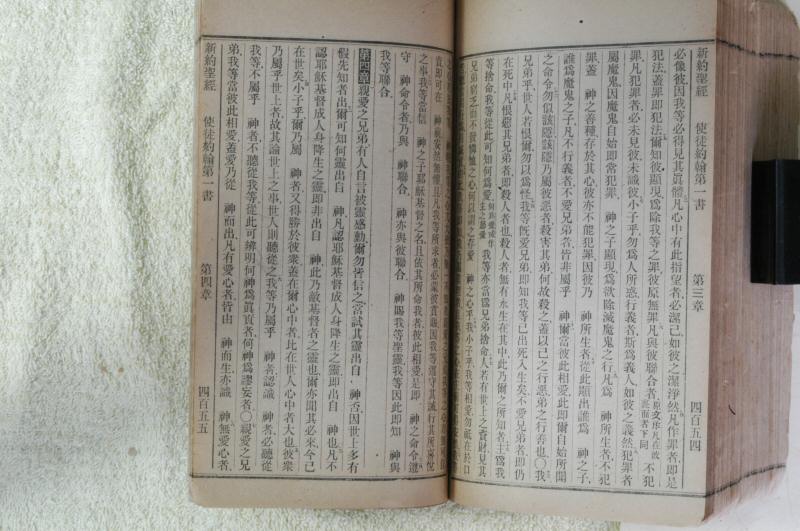 新約聖經 使徒約翰第一書 第三章 四百五四
必像彼因我等必得見其眞體凡心中有此指望者必潔己如彼之潔淨然凡作罪者即是
犯法蓋罪即犯法爾知彼顯現爲除我等之罪彼原無罪凡與彼聯合者原文作凡在彼裏面者下同不犯
罪凡犯罪者必未見彼未識彼小子乎勿爲人所惑行義者斯爲義人如彼之義然犯罪者
屬魔鬼因魔鬼自始即常犯罪 神之子顯現爲欲除滅魔鬼之行凡爲 神所生者不犯
罪蓋 神之善種存於其心彼亦不能犯罪因彼乃 神所生者從此顯出誰爲 神之子
誰爲魔鬼之子凡不行義者不愛兄弟者皆非屬乎 神爾當彼此相愛此即爾自始所聞
之命令勿似該隱該隱乃屬彼惡者殺害其弟何故殺之蓋以己之行惡弟之行善也○我
兄弟乎世人若恨爾勿以爲怪我等旣愛兄弟即知我等已出死入生矣不愛兄弟者即仍
在死中凡恨惡其兄弟者即殺人者也殺人者無有永生在其中此乃爾之所知者主爲我
等捨命我等從此可知何爲愛 我等亦當爲兄弟捨命人若有世上之貲財見其
兄弟窮乏而不發憐憫之心何以謂之存愛 神之心乎我小子乎我等相愛勿祇在於口
責即可在 神前安然無懼且凡我等所求者必蒙彼賞賜因我等遵守其誡行其所喜悅
之事我等當信 神之子耶穌基督之名且依其所命我者彼此相愛是即 神之命令遵
守 神命令者乃與 神聯合 神亦與彼聯合 神賜我等聖靈我等因此即知 神與
我等聯合
第四章親愛之兄弟有人自言被靈感動爾勿皆信之當試其靈出自 神否因世上多有
僞先知者出爾可知何靈出自 神凡認耶穌基督成人身降生之靈即出自 神也凡不
認耶穌基督成人身降生之靈即非出自 神此乃敵基督者之靈也爾亦聞其必來今已
在世矣小子乎爾乃屬 神者又得勝於彼衆蓋在爾心中者比在世人心中者大也彼衆
乃屬乎世上者故其論世上之事世人則聽從之我等乃屬乎 神者認識 神者必聽從
我等不屬乎 神者不聽從我等從此可辨明何神爲眞者何神爲謬妄者○親愛之兄
弟我等當彼此相愛蓋愛乃從 神而出凡有愛心者皆由 神而生亦識 神無愛心者
新約聖經 使徒約翰第一書 第四章 四百五五